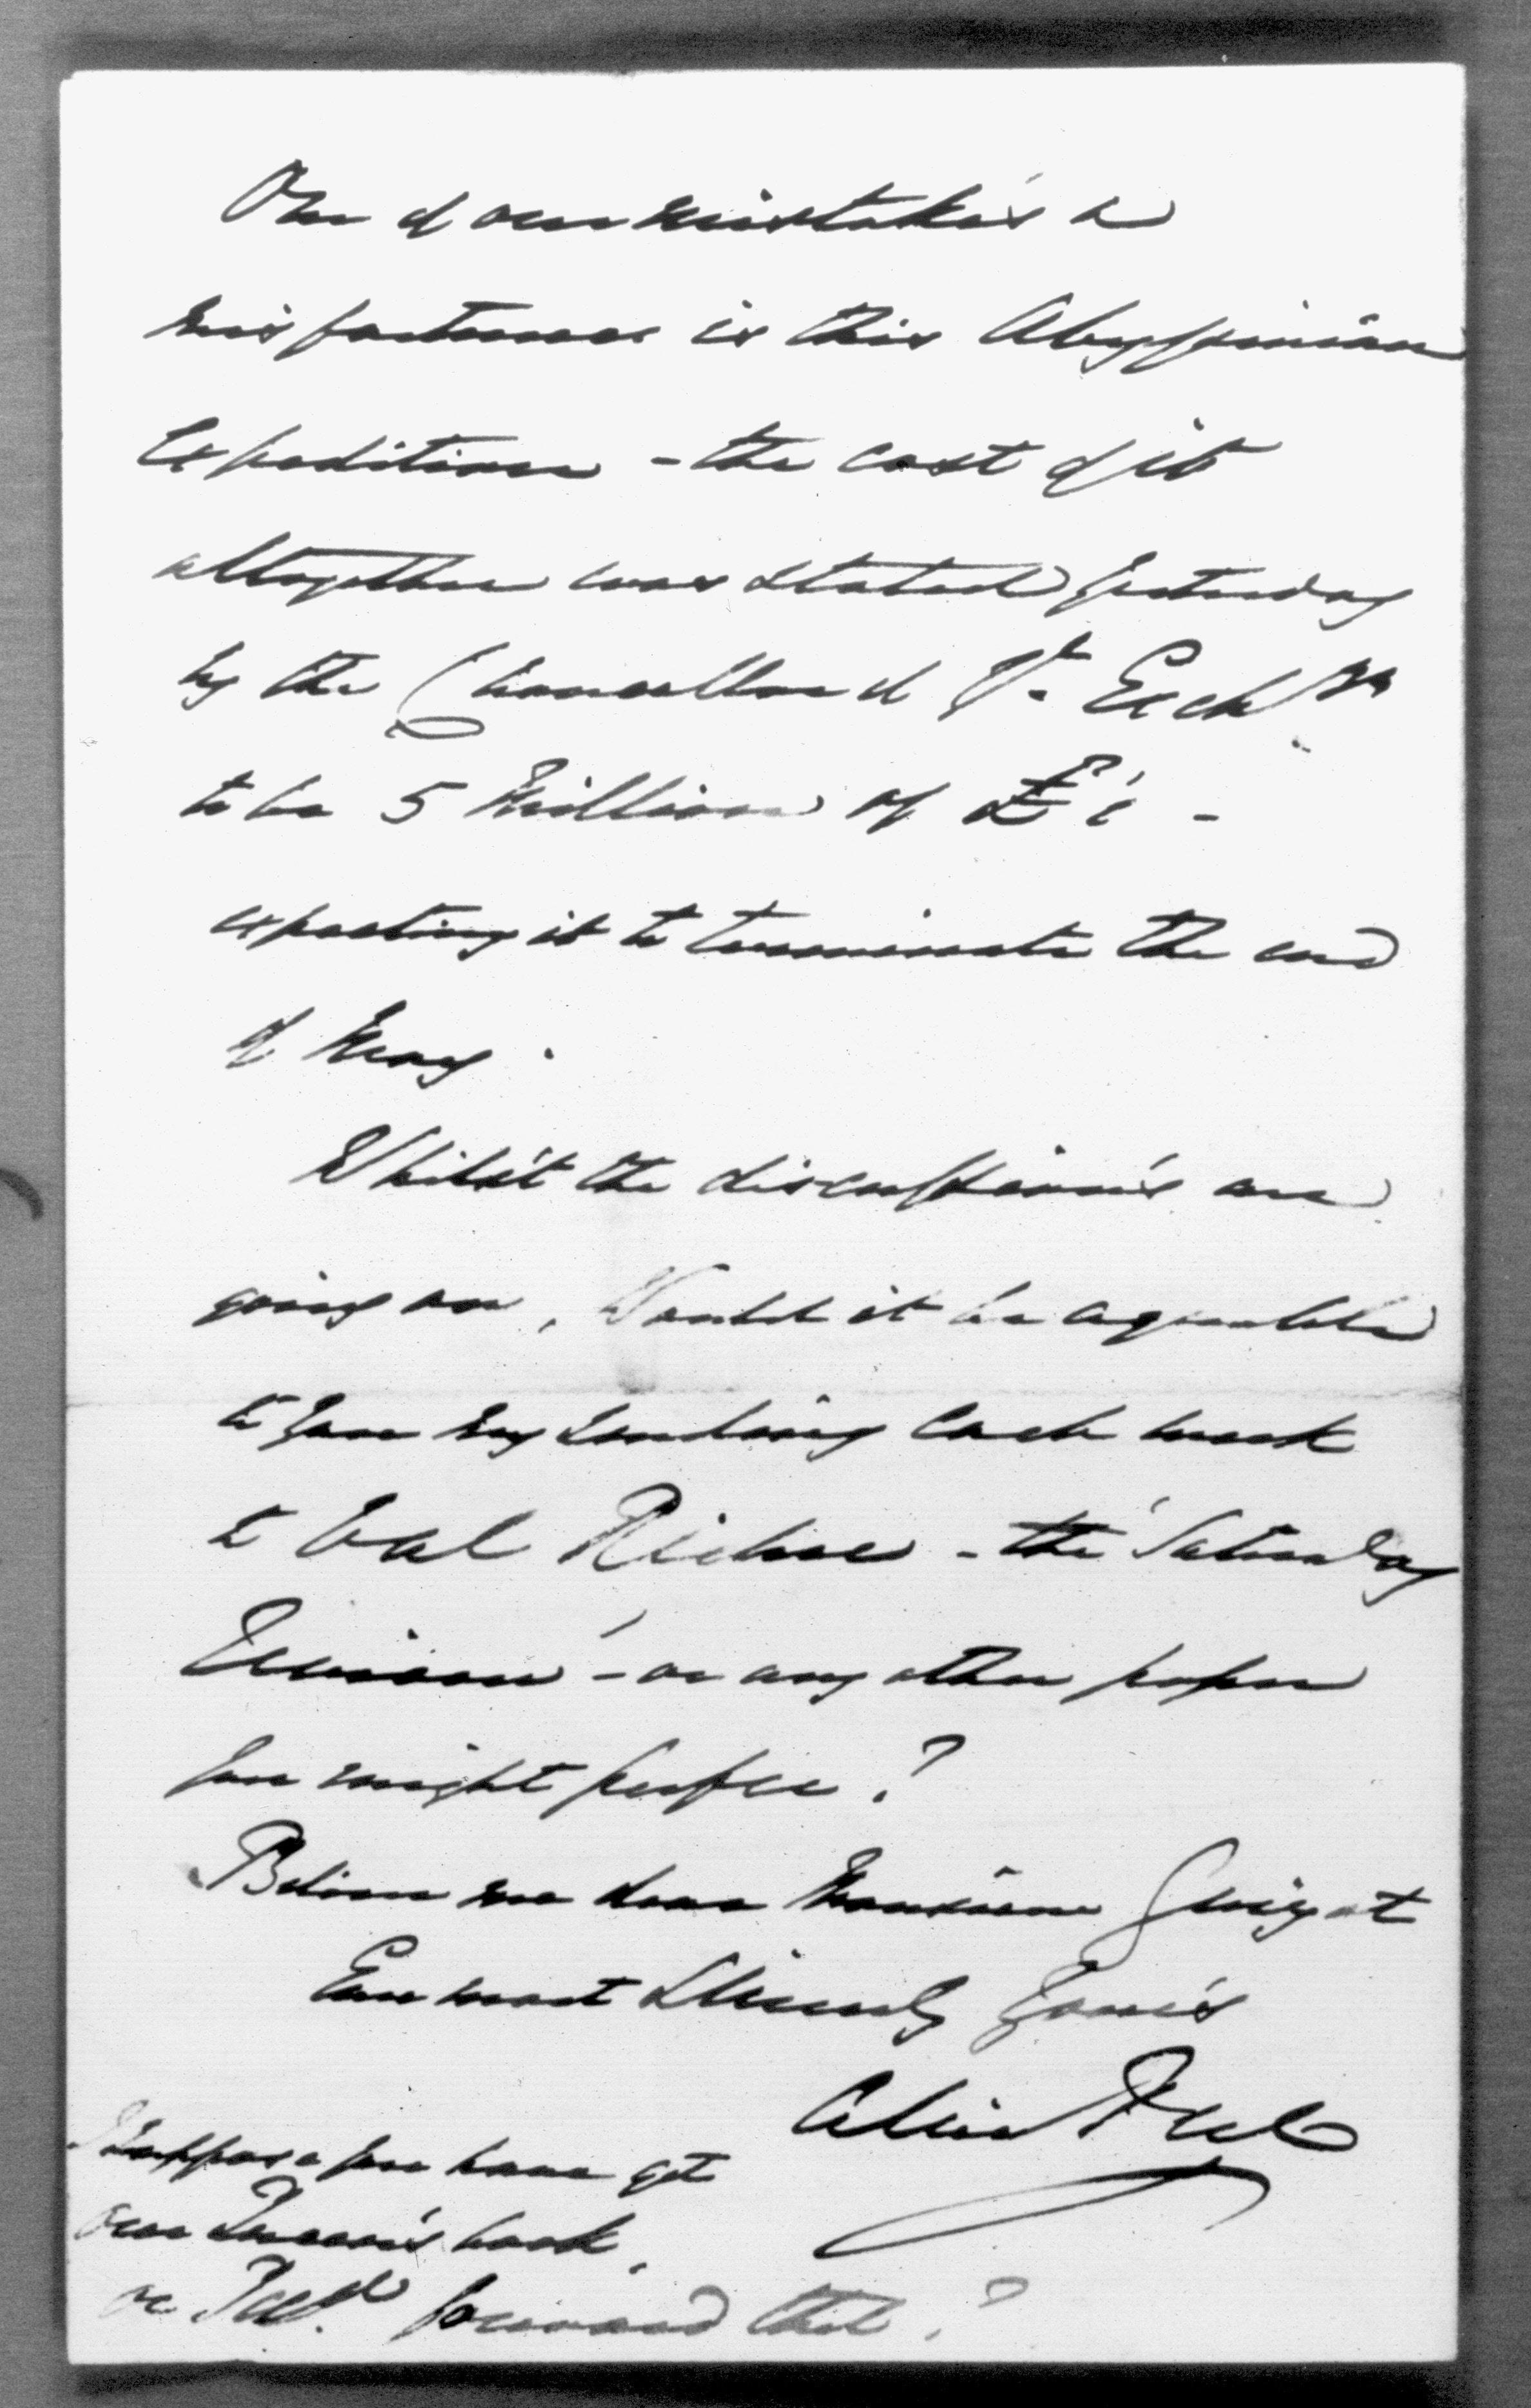 One of our mistakes or
misfortunes is this Abyssinian
Expedition - the cost of it
altogether was stated yesterday
by the Chancellor of Excheqr
to be 5 Million of £'s -
expecting it to terminate the end
of May.
Whilst the discussions are
going on, Would it be agreeable
to you my sending each week
to Val Richer - the 'Saturday
Review' - or any other paper
you might prefer?
Believe me dear Monsieur Guizot
Ever most Sincerely Yours
Alice Peel
I suppose you have got
our Queen's book,
or I cd. forward that?